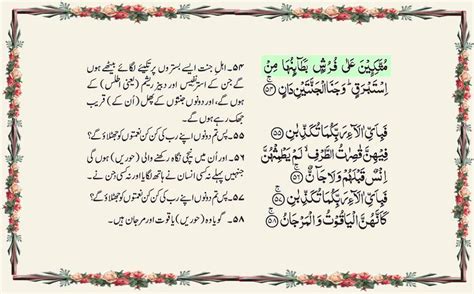 مُتَّكِـِٕيْنَ عَلٰى فُرُشٍۭ بَطَآىِٕنُهَا مِنْ
اِسْتَبْرَقٍ ؕ وَ جَنَا الْجَنَّتَيْنِ دَانٍ ۚ ﴿۵۴﴾
فَبِاَيِّ اٰلَآءِ رَبِّكُمَا تُكَذِّبٰنِ ﴿۵۵﴾
فِيْهِنَّ قٰصِرٰتُ الطَّرْفِ ۙ لَمْ يَطْمِثْهُنَّ
اِنْسٌ قَبْلَهُمْ وَ لَا جَآنٌّ ۚ ﴿۵۶﴾
فَبِاَيِّ اٰلَآءِ رَبِّكُمَا تُكَذِّبٰنِ ۚ ﴿۵۷﴾
كَاَنَّهُنَّ الْيَاقُوْتُ وَ الْمَرْجَانُ ۚ ﴿۵۸﴾
۵۴۔ اہلِ جنت ایسے بستروں پر تکیئے لگائے بیٹھے ہوں
گے جن کے استر نفیس اور دبیز ریشم (یعنی اطلس) کے
ہوں گے، اور دونوں جنتوں کے پھل (اُن کے) قریب
جھک رہے ہوں گے۔
۵۵۔ پس تم دونوں اپنے رب کی کن کن نعمتوں کو جھٹلاؤ گے؟
۵۶۔ اور اُن میں نیچی نگاہ رکھنے والی (حوریں) ہوں گی جنہیں
پہلے نہ کسی انسان نے ہاتھ لگایا اور نہ کسی جن نے۔
۵۷۔ پس تم دونوں اپنے رب کی کن کن نعمتوں کو جھٹلاؤ گے؟
۵۸۔ گویا وہ (حوریں) یاقوت اور مرجان ہیں۔